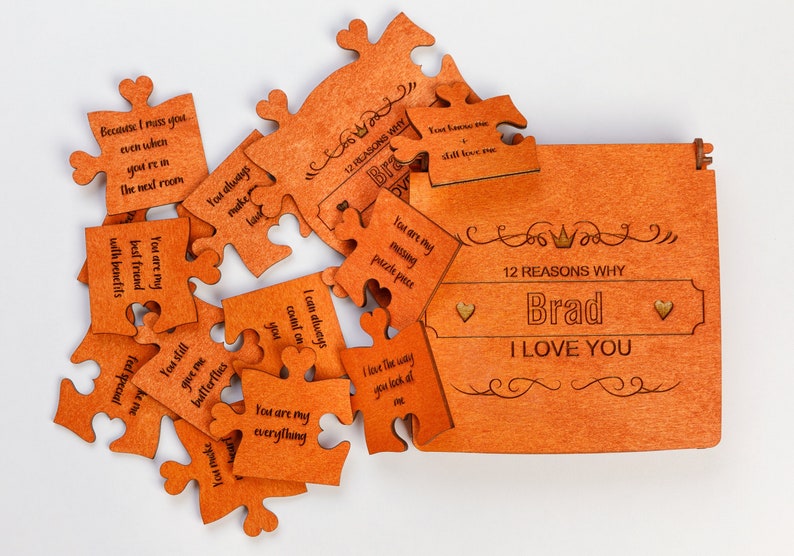 Because I miss you
even when
you're in
the next room
You always
make me
12 REASONS WHY
Brad
I LOVE
You know me
+
still love me
You are my
missing
puzzle piece
You are my
best friend
with benefits
I can always
count on
you
You still
give me
butterflies
me
feel special
I love the way
you look at
me
You are my
everything
You make
12 REASONS WHY
Brad
I LOVE YOU